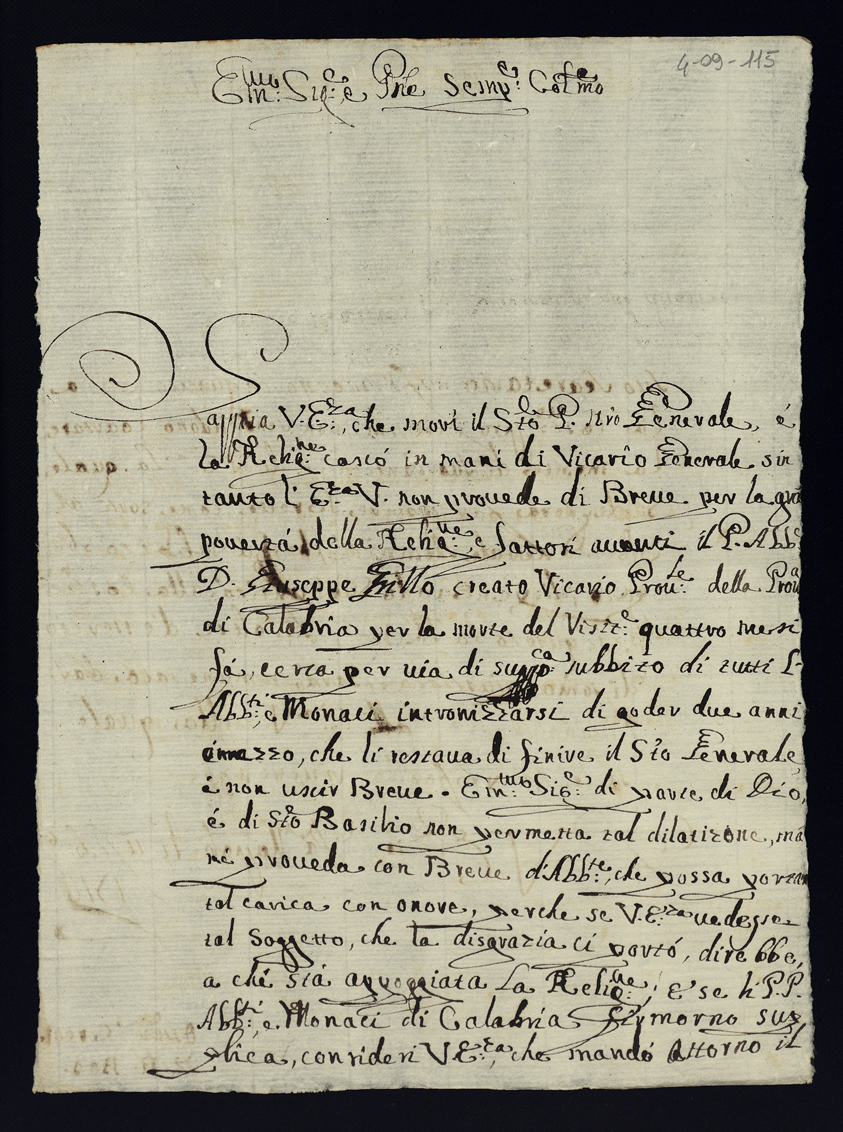 4-09-115
Em:mo Sig:re e Pne Semp:e Col:mo
Sappia V. E:za, che morì il Sto P. nro Generale, é
la Relig:ne cascó in mani di Vicario Generale sin
tanto l' E:za V. non provede di Breve per la gra
povertá della Relig:ne e fattosi avanti il P. Abb:e
D. Giuseppe Grillo creato Vicario Prov:le della Prov:a
di Calabria per la morte del Visit:e quattro mesi
fá, cerca per via di supp:ca subbito di tutti l'
Abb:ti e Monaci intronizzarsi di goder due anni
é mezzo, che li restava di finire il Sto Generale
é non uscir Breve. Em:mo Sig:e di parte di Dio,
é di Sto Basilio non permetta tal dilatizone, má
né proveda con Breve d'Abb:te, che possa portar
tal carica con onore, perche se V. E:za vedesse
tal Soggetto, che la disgrazia ci portó, direbbe,
a chi stá appoggiata la Relig:ne, E' se li P.P.
Abb:ti, e Monaci di Calabria firmorno sup
plica, consideri V. E:za, che mandó attorno il